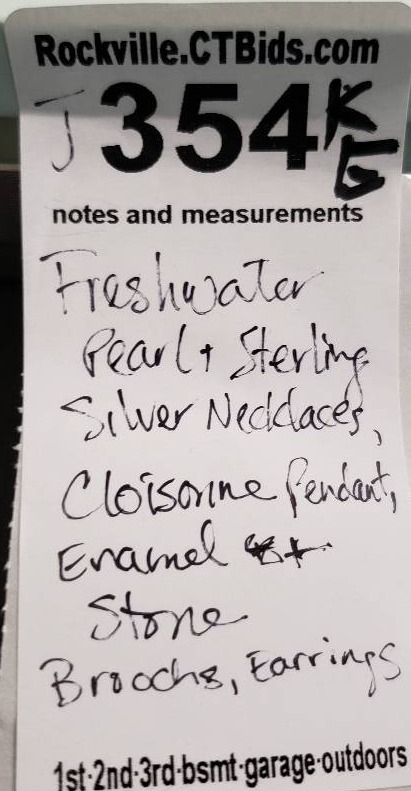 Rockville.CTBids.com
J 354 K
E
notes and measurements
Freshwater
Pearl + Sterling
Silver Necklaces,
Cloisonne Pendant,
Enamel +
Stone
Broochs, Earrings
1st·2nd·3rd·bsmt·garage·outdoors